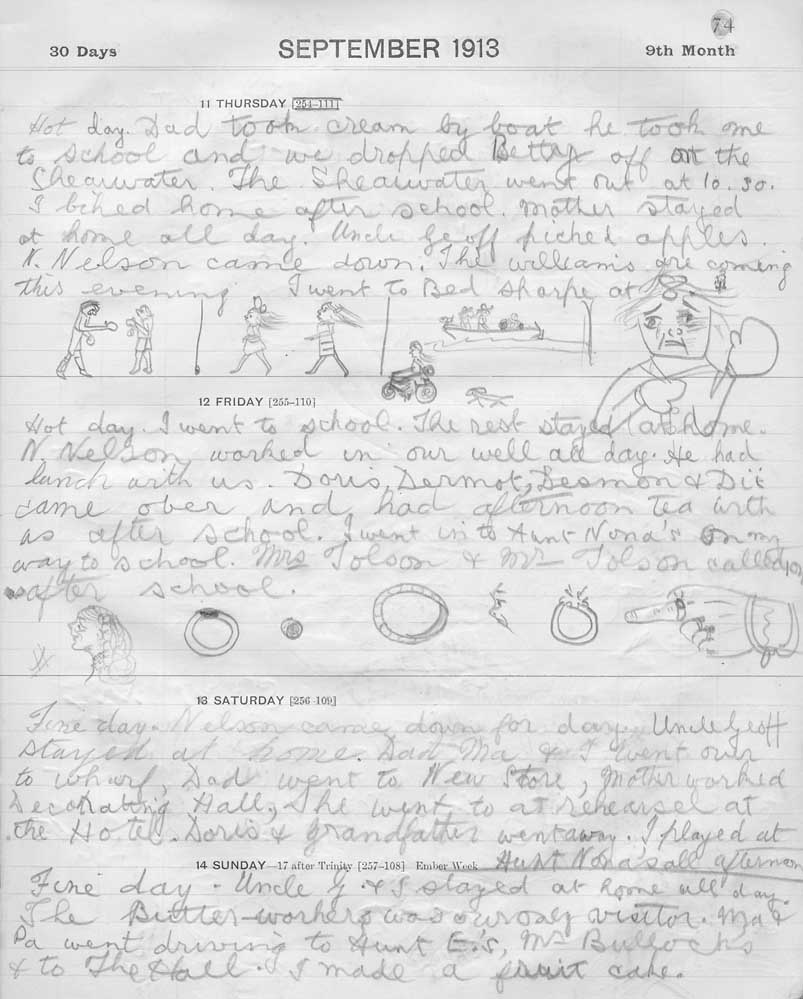 74
30 Days SEPTEMBER 1913 9th Month
11 THURSDAY [254–111]
Hot day. Dad took cream by boat he took me
to school and we dropped Betty off at the
Shearwater. The Shearwater went out at 10.30.
I biked home after school. Mother stayed
at home all day. Uncle Geoff picked apples.
N. Nelson came down. The williams are coming
this evening I went to Bed sharpe at
12 FRIDAY [255–110]
Hot day. I went to school. The rest stayed at home.
N. Nelson worked in our well all day. He had
lunch with us. Doris, Dermot, Desmon & Dii
came ober and had afternoon tea with
as after school. I went in to Aunt Nona's on my
way to school. Mrs Tolson & Mr Tolson called
after school.
13 SATURDAY [256–109]
Fine day. Nelson came down for day. Uncle Geoff
stayed at home. Dad Ma & I went over
to wharf, Dad went to New Store, Mother worked
Decorating Hall, She went to at rehearsel at
the Hotel. Doris & grandfather went away. I played at
Aunt Nona's all afternoon
14 SUNDAY—17 after Trinity [257–108] Ember Week
Fine day. Uncle G. & I stayed at home all day.
The Butter-workers was our only visitor. Ma &
Pa went driving to Aunt E.'s, Mr Bullocks
& to The Hall. I made a fruit cake.